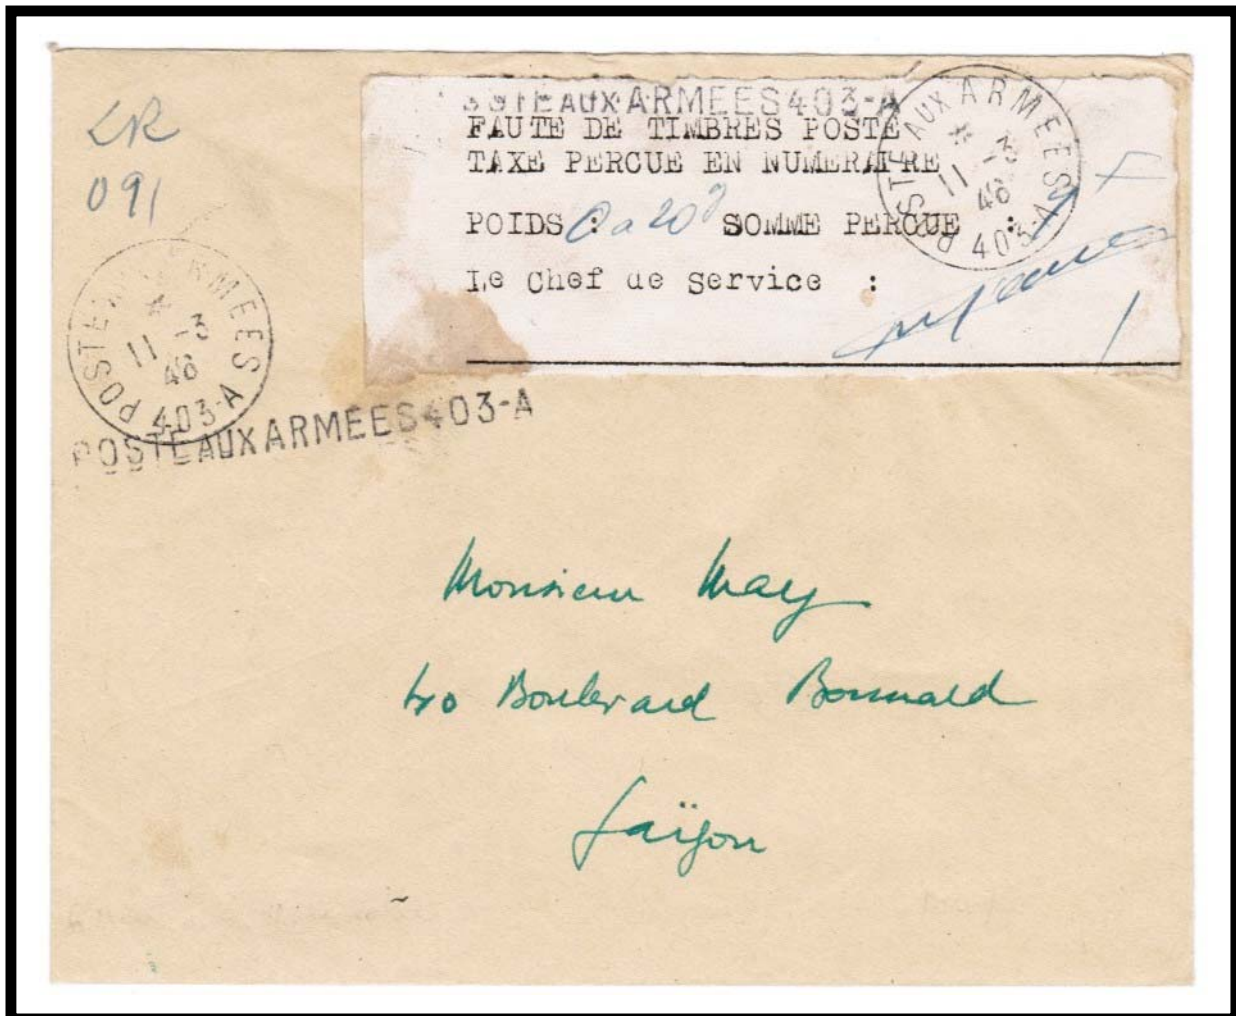 LR
091
POSTE AUX ARMEES 403-A
FAUTE DE TIMBRES POSTE
TAXE PERCUE EN NUMERAIRE
POIDS : 0 a 20g SOMME PERCUE :
Le Chef de Service :
POSTE AUX ARMEES 403-A
* 11 -3 46
POSTE AUX ARMEES 403-A
* 11 -3 46
POSTE AUX ARMEES 403-A
Monsieur May
40 Boulevard Bonnard
Saïgon